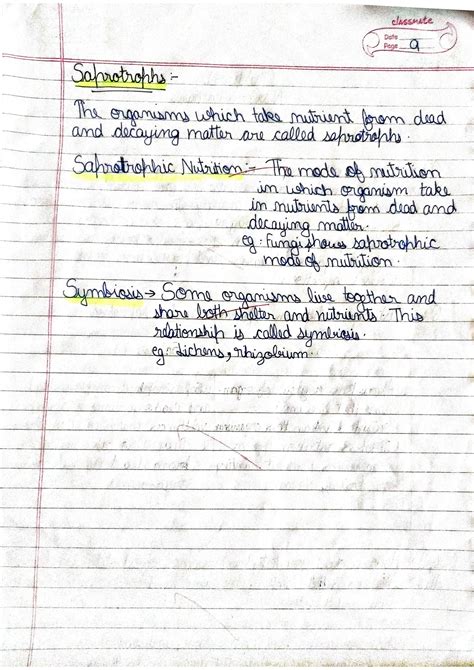 classmate
Date
Page 9
Saprotrophs :-
The organisms which take nutrient from dead
and decaying matter are called saprotrophs.
Saprotrophic Nutrition :- The mode of nutrition
in which organism take
in nutrients from dead and
decaying matter.
eg: Fungi shows saprotrophic
mode of nutrition.
Symbiosis → Some organisms live together and
share both shelter and nutrients. This
relationship is called symbiosis.
eg: Lichens, rhizobium.